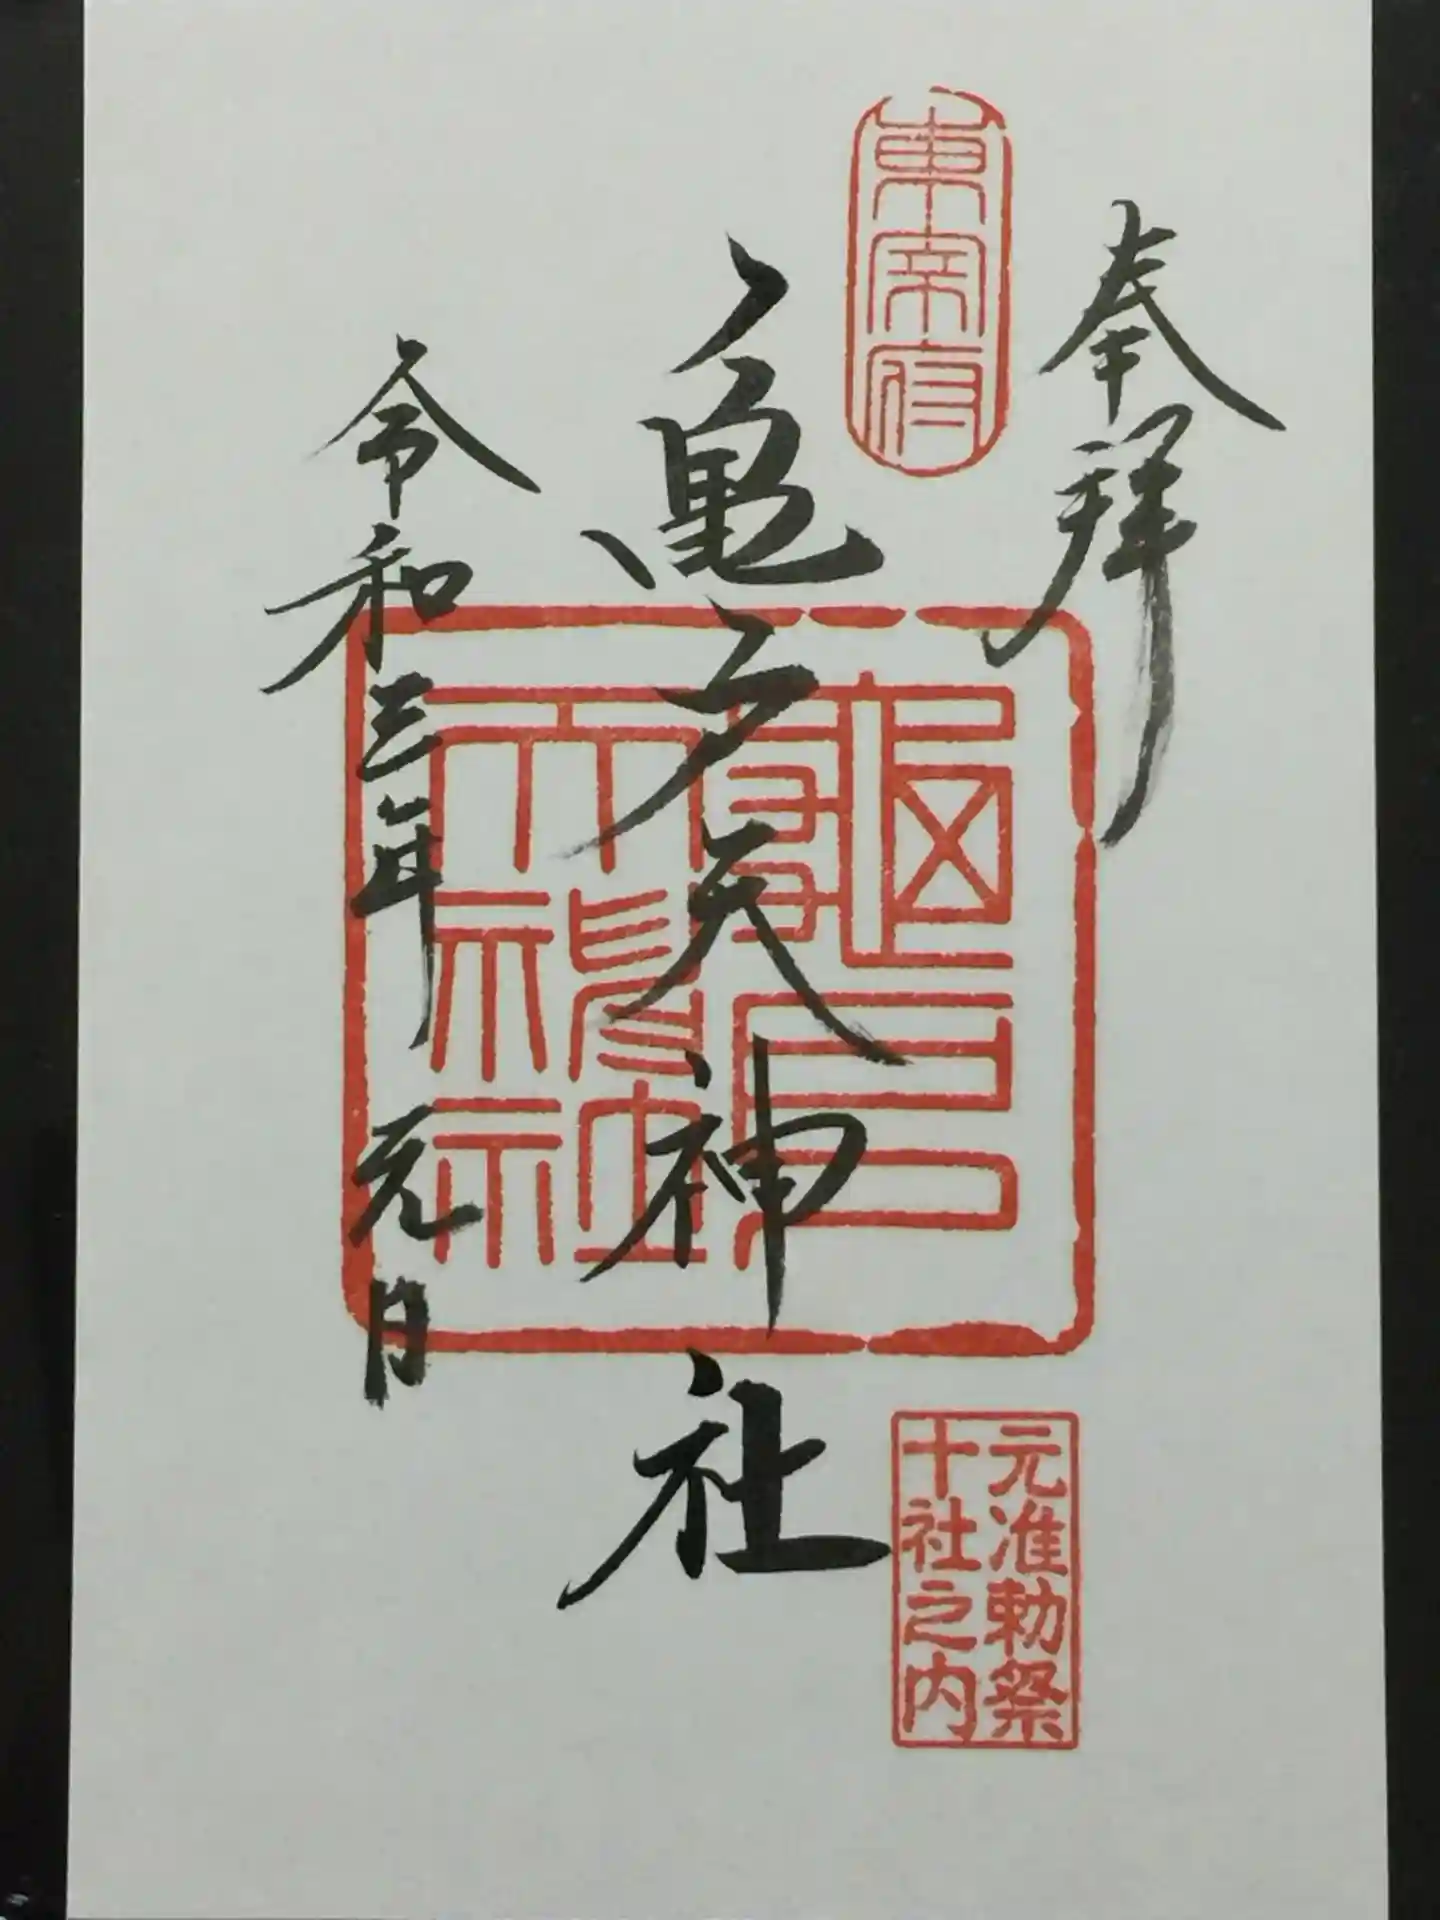 奉拝
東宰府
亀戸天神社
龜戸
天神社
令和三年 元日
元准勅祭
十社之内